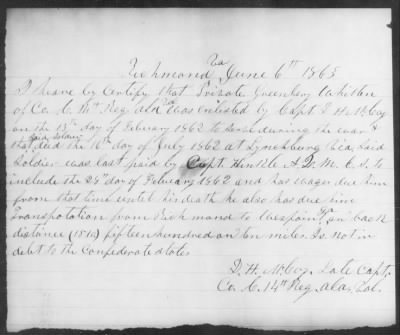 Richmond Va June 6th 1863
I heare by Certify that Private Greenberg Whitten
of Co. C. 14th Reg Ala Vo was enlisted by Capt. D H McCoy
on the 13th day of Februry 1862 to serve during the war &
Said Soldier
that died the 16th day of July 1862 at Lynchburg Va, Said
Soldier was last paid by Capt. Hinkle A. Q. M. C. S. to
include the 28th day of Februry 1862 and has wages due him
from that time until his death he also has due him
Transpotation from Richmond to Wespoint Ga on back
distance (1510) fifteen hundred on ten miles. Is not in
debt to the Confederate States
D. H. McCoy, Late Capt.
Co. C. 14th Reg. Ala. Vol.